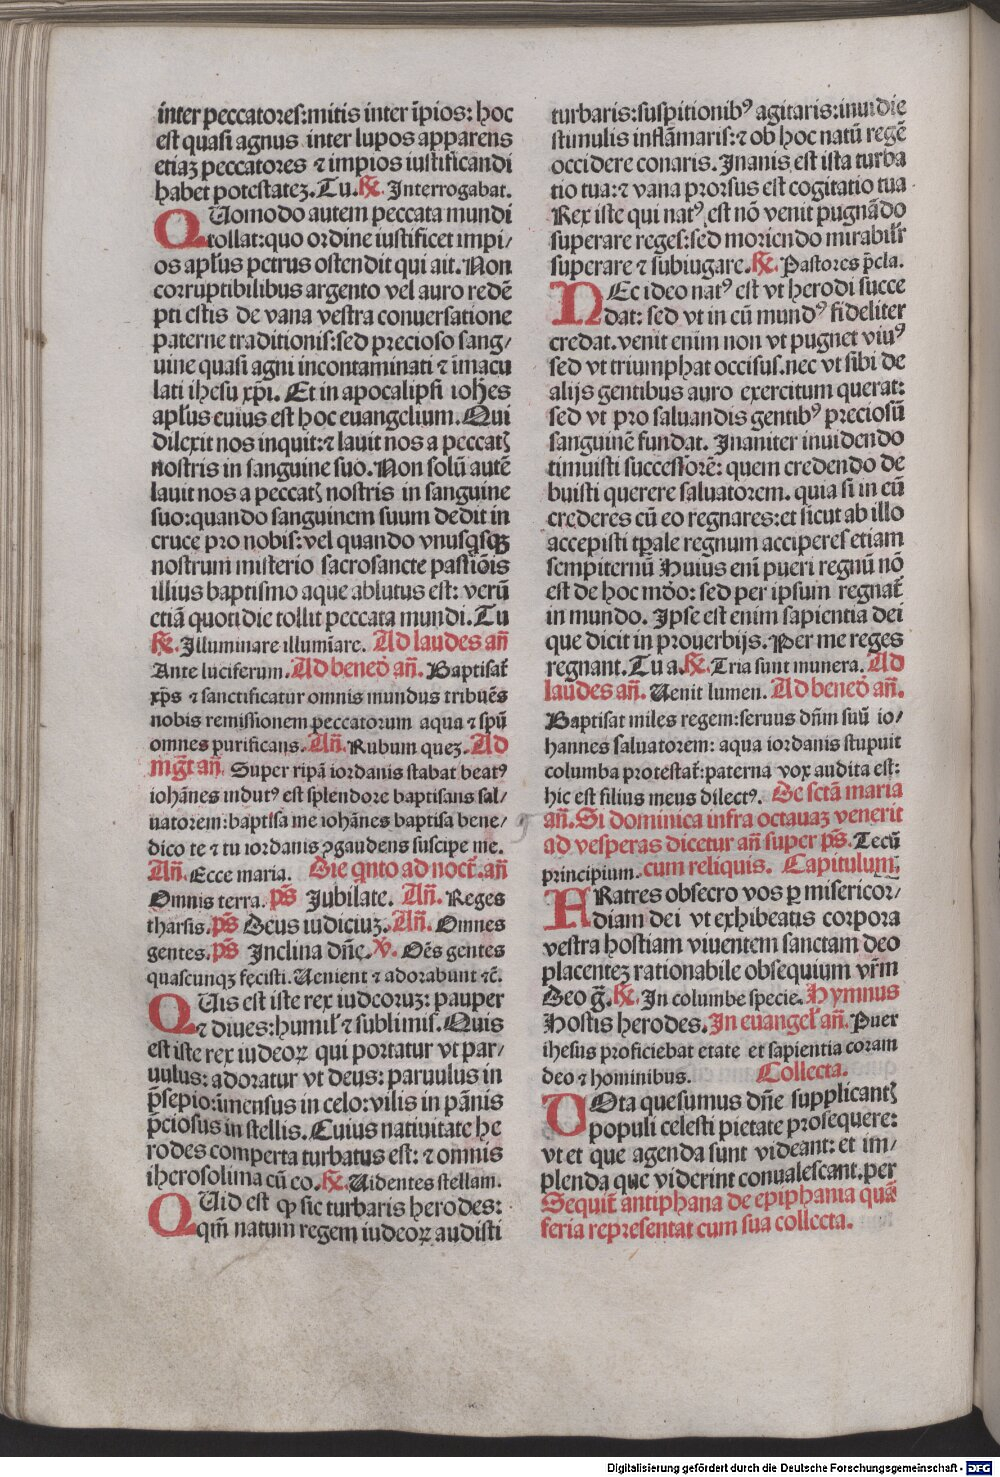 inter peccatores:mitis inter īpios: hoc
est quasi agnus inter lupos apparens
etiaꝫ peccatores ⁊ impios iustificandi
habet potestateꝫ. Tu. ℟. Interrogabat.
QUomodo autem peccata mundi
tollat:quo ordine iustificet impi/
os apl̄us petrus ostendit qui ait. Non
corruptibilibus argento vel auro redē
pti estis de vana vestra conuersatione
paterne traditionis:sed precioso sang/
uine quasi agni incontaminati ⁊ īmacu
lati ihesu xp̄i. Et in apocalipsi ioh̄es
apl̄us cuius est hoc euangelium. Qui
dilexit nos inquit:⁊ lauit nos a peccatꝭ
nostris in sanguine suo. Non solū autē
lauit nos a peccatꝭ nostris in sanguine
suo:quando sanguinem suum dedit in
cruce pro nobis:vel quando vnusqͥsqꝫ
nostrum misterio sacrosancte passiōis
illius baptismo aque ablutus est: verū
etiā quotidie tollit peccata mundi. Tu
℟. Illuminare illumīare. Ad laudes an̄
Ante luciferum. Ad bened̄ an̄. Baptisat᷑
xp̄s ⁊ sanctificatur omnis mundus tribuēs
nobis remissionem peccatorum aqua ⁊ spū
omnes purificans. An̄. Rubum queꝫ. Ad
mḡt an̄. Super ripā iordanis stabat beatꝰ
iohānes indutꝰ est splendore baptisans sal/
uatorem:baptisa me iohānes baptisa bene/
dico te ⁊ tu iordanis ꝯgaudens suscipe me.
An̄. Ecce maria. Die qͥnto ad noct̄. an̄
Omnis terra. ps̄ Jubilate. An̄. Reges
tharsis. ps̄ Deus iudiciuꝫ. An̄. Omnes
gentes. ps̄ Inclina dn̄e. ꝟ. Oēs gentes
quascunqꝫ fecisti. Uenient ⁊ adorabunt ⁊c̄.
QUis est iste rex iudeoruꝫ: pauper
⁊ diues:humil̓ ⁊ sublimis. Quis
est iste rex iudeoꝝ qui portatur vt par/
uulus: adoratur vt deus: paruulus in
p̄sepio:īmensus in celo:vilis in pānis
p̄ciosus in stellis. Cuius natiuitate he
rodes comperta turbatus est: ⁊ omnis
iherosolima cū eo. ℟. Uidentes stellam.
QUid est ꝙ sic turbaris herodes:
qm̄ natum regem iudeoꝝ audisti
turbaris:suspitionibꝰ agitaris:inuidie
stimulis inflāmaris:⁊ ob hoc natū regē
occidere conaris. Inanis est ista turba
tio tua:⁊ vana prorsus est cogitatio tua
Rex iste qui natꝰ est nō venit pugnādo
superare reges:sed moriendo mirabilr̄
superare ⁊ subiugare. ℟. Pastores p̄cla.
NEc ideo natꝰ est vt herodi succe
dat: sed vt in eū mundꝰ fideliter
credat. venit enim non vt pugnet viuꝰ
sed vt triumphat occisus. nec vt sibi de
alijs gentibus auro exercitum querat:
sed vt pro saluandis gentibꝰ preciosū
sanguinē fundat. Inaniter inuidendo
timuisti successorē: quem credendo de
buisti querere saluatorem. quia si in eū
crederes cū eo regnares:et sicut ab illo
accepisti tp̄ale regnum acciperes etiam
sempiternū Huius enī pueri regnū nō
est de hoc mūdo: sed per ipsum regnat᷑
in mundo. Ipse est enim sapientia dei
que dicit in prouerbijs. Per me reges
regnant. Tu a. ℟. Tria sunt munera. Ad
laudes an̄. Uenit lumen. Ad bened̄ an̄.
Baptisat miles regem:seruus dn̄m suū io/
hannes saluatorem: aqua iordanis stupuit
columba protestat᷑:paterna vox audita est:
hic est filius meus dilectꝰ. De sctā maria
an̄. Si dominica infra octauaꝫ venerit
ad vesperas dicetur an̄ super ps̄. Tecū
principium. cum reliquis. Capitulum.
FRatres obsecro vos ꝑ misericor/
diam dei vt exhibeatis corpora
vestra hostiam viuentem sanctam deo
placenteꝫ rationabile obsequium vr̄m
Deo ḡ. ℟. In columbe specie. Hymnus
Hostis herodes. In euangel̓ an̄. Puer
ihesus proficiebat etate et sapientia coram
deo ⁊ hominibus. Collecta.
UOta quesumus dn̄e supplicantꝭ
populi celesti pietate prosequere:
vt et que agenda sunt videant: et im/
plenda que viderint conualescant. per
Sequit᷑ antiphana de epiphania quā
feria representat cum sua collecta.
Digitalisierung gefördert durch die Deutsche Forschungsgemeinschaft - DFG